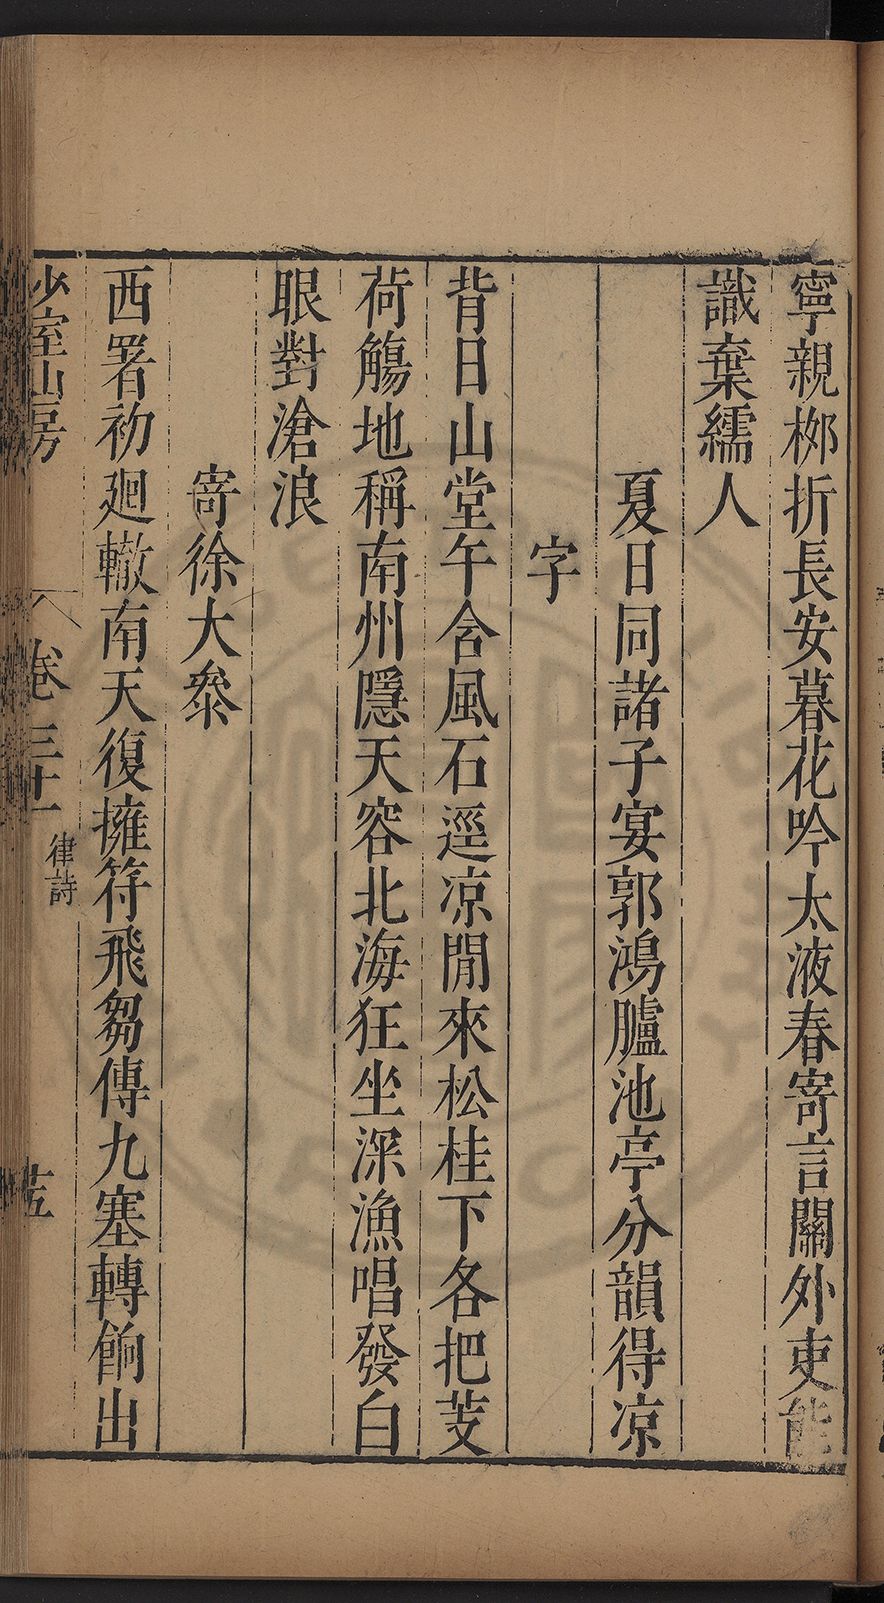 寧親桞折長安暮花吟太液春寄言關外吏能
識棄繻人
夏日同諸子宴郭鴻臚池亭分韻得凉
字
背日山堂午含風石逕凉閒來松桂下各把芰
荷觴地稱南州隱天容北海狂坐深漁唱發白
眼對滄浪
寄徐大叅
西署初廻轍南天復擁符飛芻傳九塞轉餉出
少室山房
卷三十一
律詩
十五